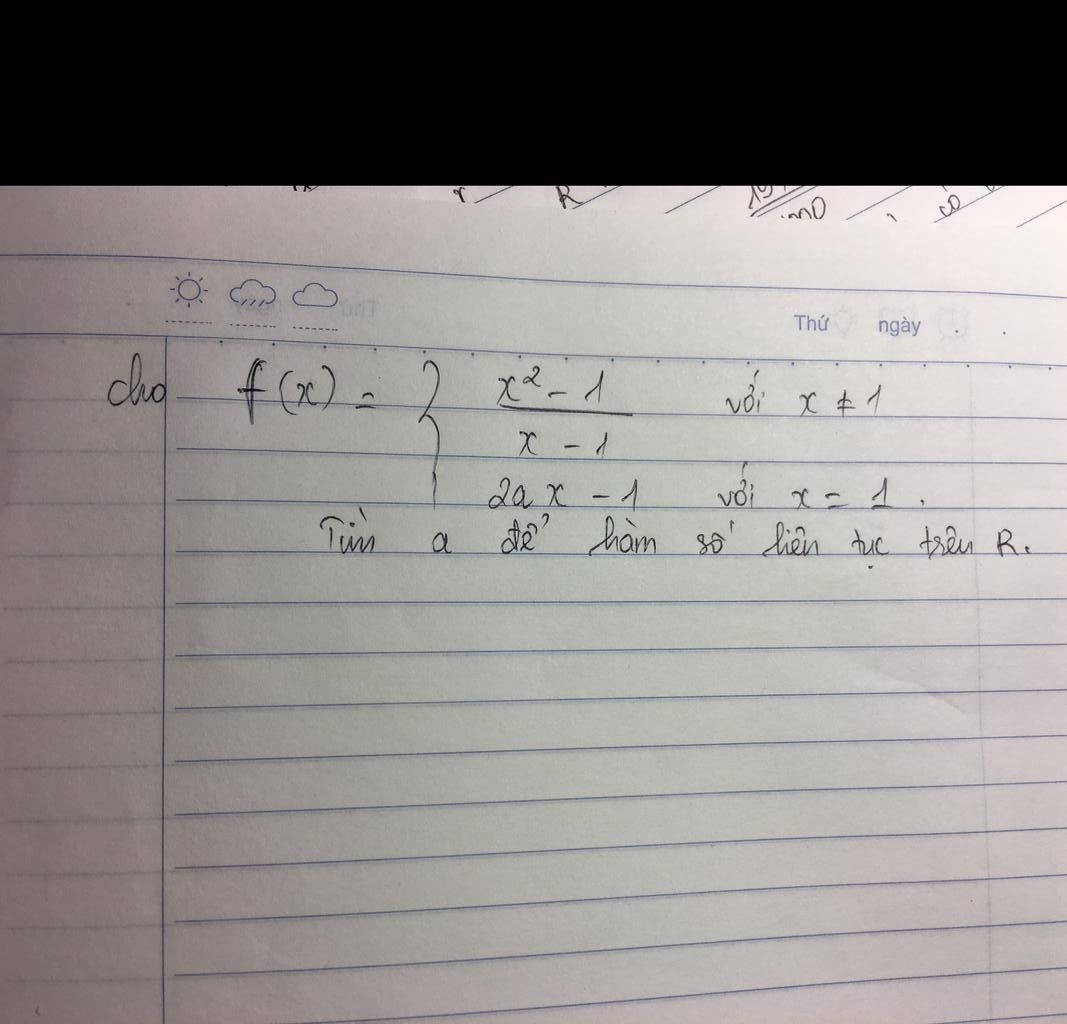 Thứ ngày
cho f(x) = { x² - 1 / x - 1 với x ≠ 1
2ax - 1 với x = 1.
Tìm a để hàm số liên tục trên R.